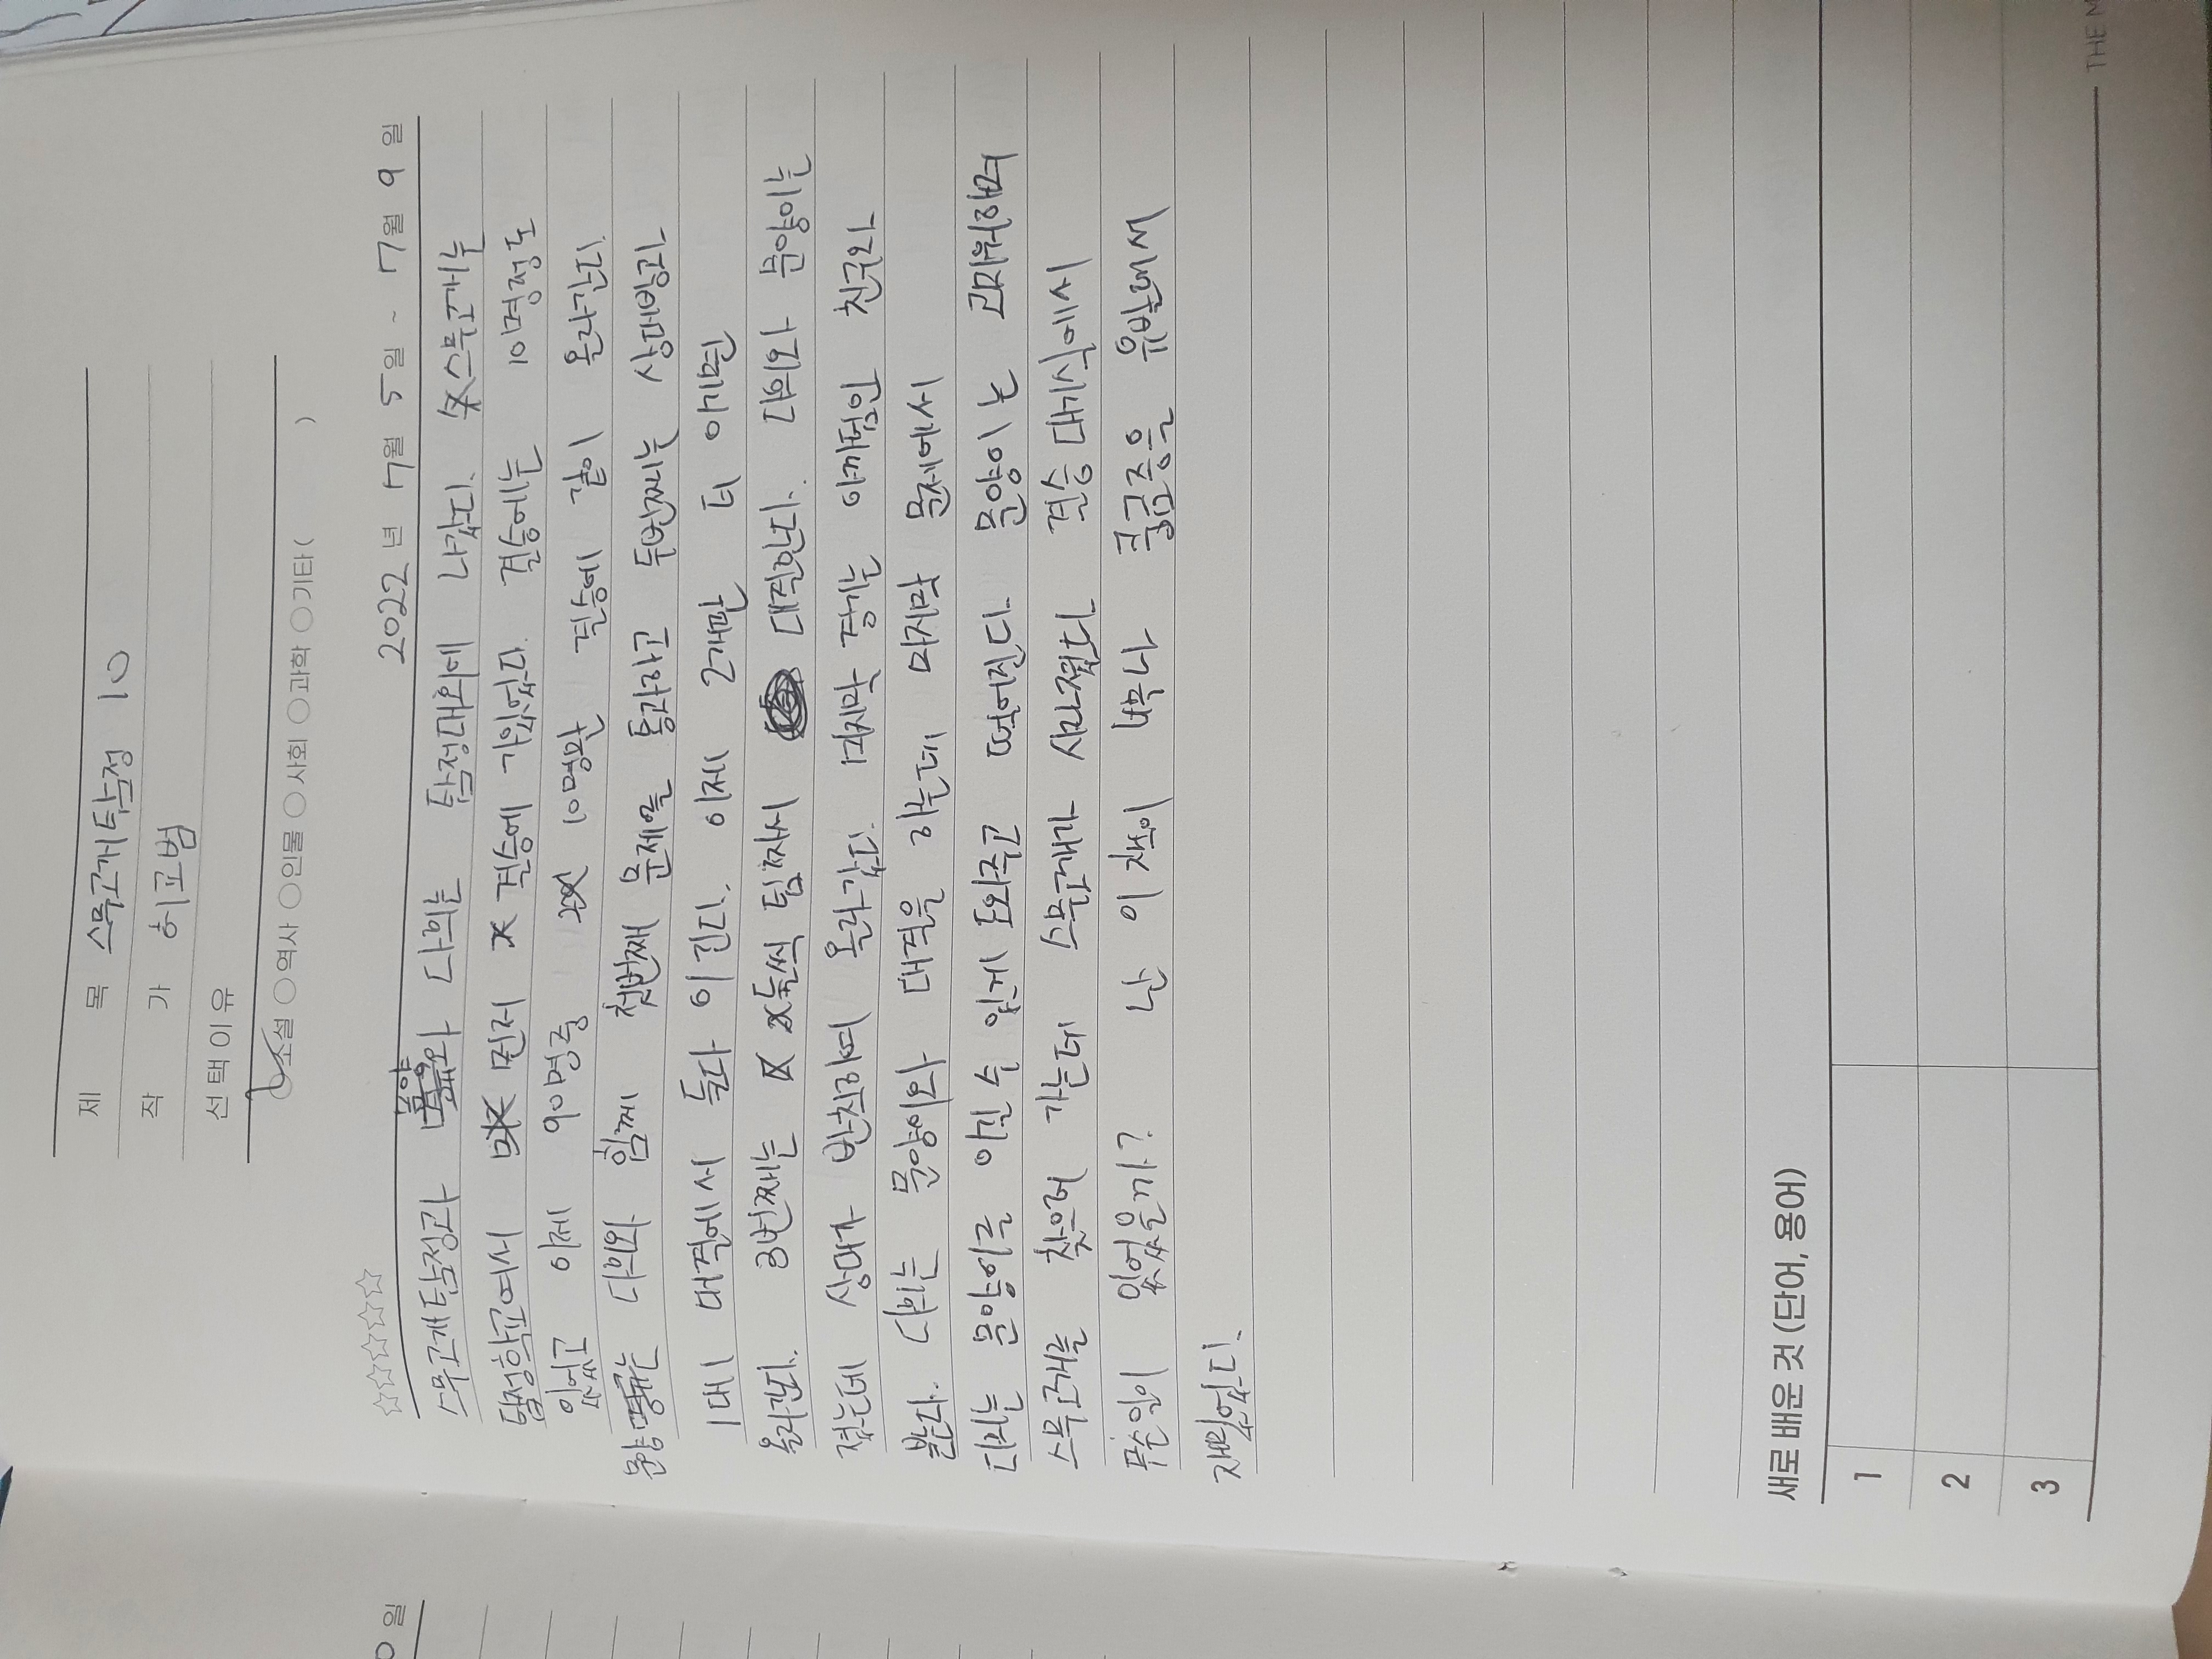 제 목 스무고개탐정 10
작 가 허교범
선택이유
소설 ○역사 ○인물 ○사회 ○과학 ○기타( )
☆☆☆☆☆
2022 년 7월 5일 ~ 7월 9일
스무고개탐정과 문양와 다의는 탐정대회에 나갔다. 스무고개는
탐정학교여서 먼저 결승에 가있었다. 결승에는 10명정도
있었고 이제 90명중 10명만 결승에 같이 올라간다.
문양는 다의와 함께 첫번째 문제을 통과하고 두번째는 상대방과
1대1 대직에서 둘다 이긴다. 이제 2개만 더 이기면
올라간다. 3번째는 둘씩 팀짜서 대직한다. 다의와 문양이는
졌는데 상대가 반칙하여 올라갔다. 마지막 경기는 이때편인 친구와
본다. 다의는 문양이와 대직을 하는데 마지막 문제에서
다의는 문양이를 이길수 있게 도와주고 떨어진다. 문양이는 고마워하며
스무고개를 찾으러 가는데 스무고개가 사라졌다 결승 대기식에서
무슨일이 있었을까? 난 이 책이 너무나 궁금증을 유발해서
재밌었다.
새로 배운 것 (단어, 용어)
1
2
3
THE M
일